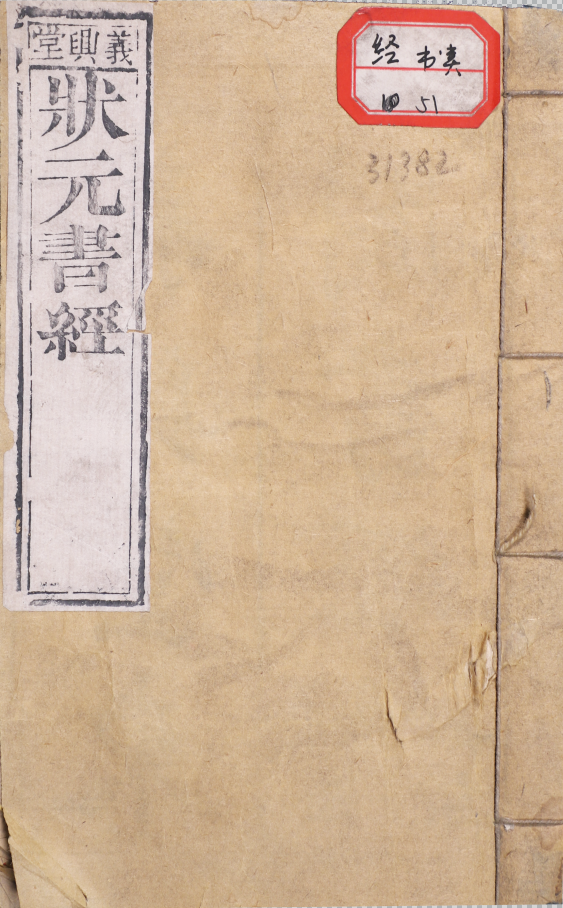 義興堂
狀元書經
经 书类
四 51
31382